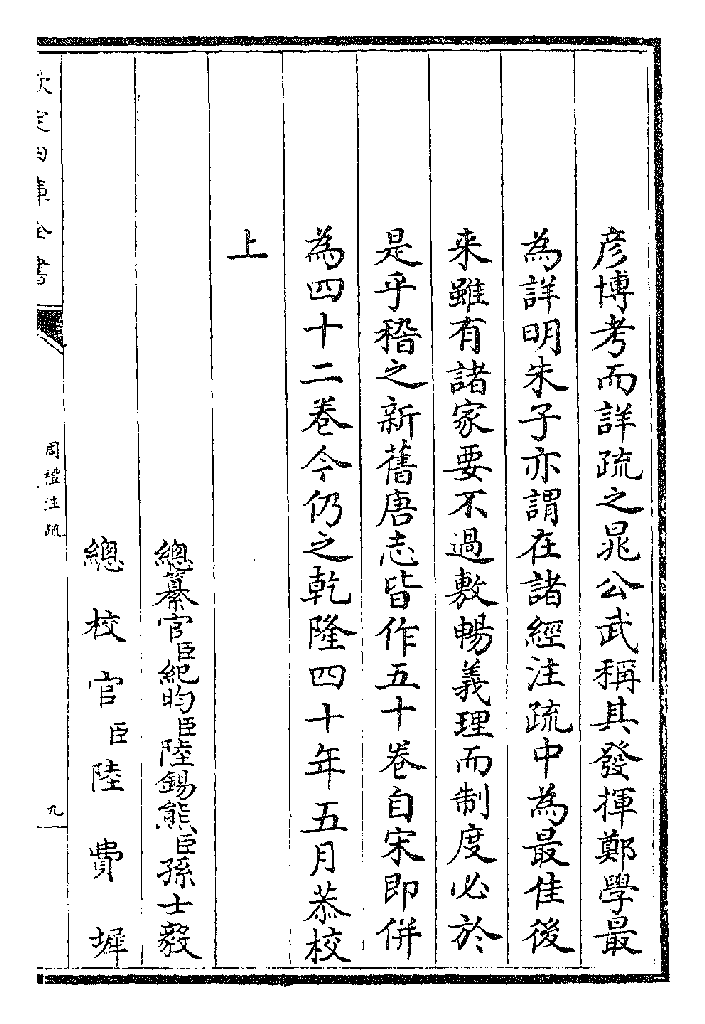 彦博考而詳疏之晁公武稱其發揮鄭學最
為詳明朱子亦謂在諸經注疏中為最佳後
来雖有諸家要不過敷暢義理而制度必於
是乎稽之新舊唐志皆作五十卷自宋即併
為四十二卷今仍之乾隆四十年五月恭校
上
總纂官臣紀昀臣陸錫熊臣孫士毅
總校官臣陸費墀
欽定四庫全書
周禮注疏
九